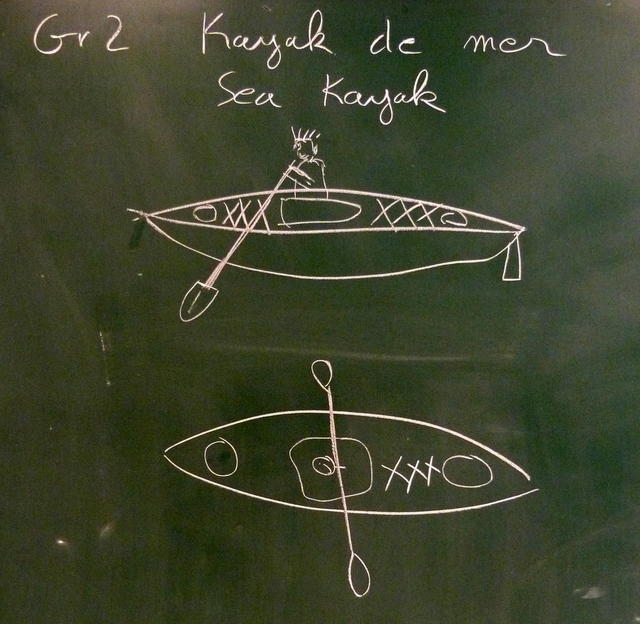 Gr 2 Kayak de mer
Sea Kayak